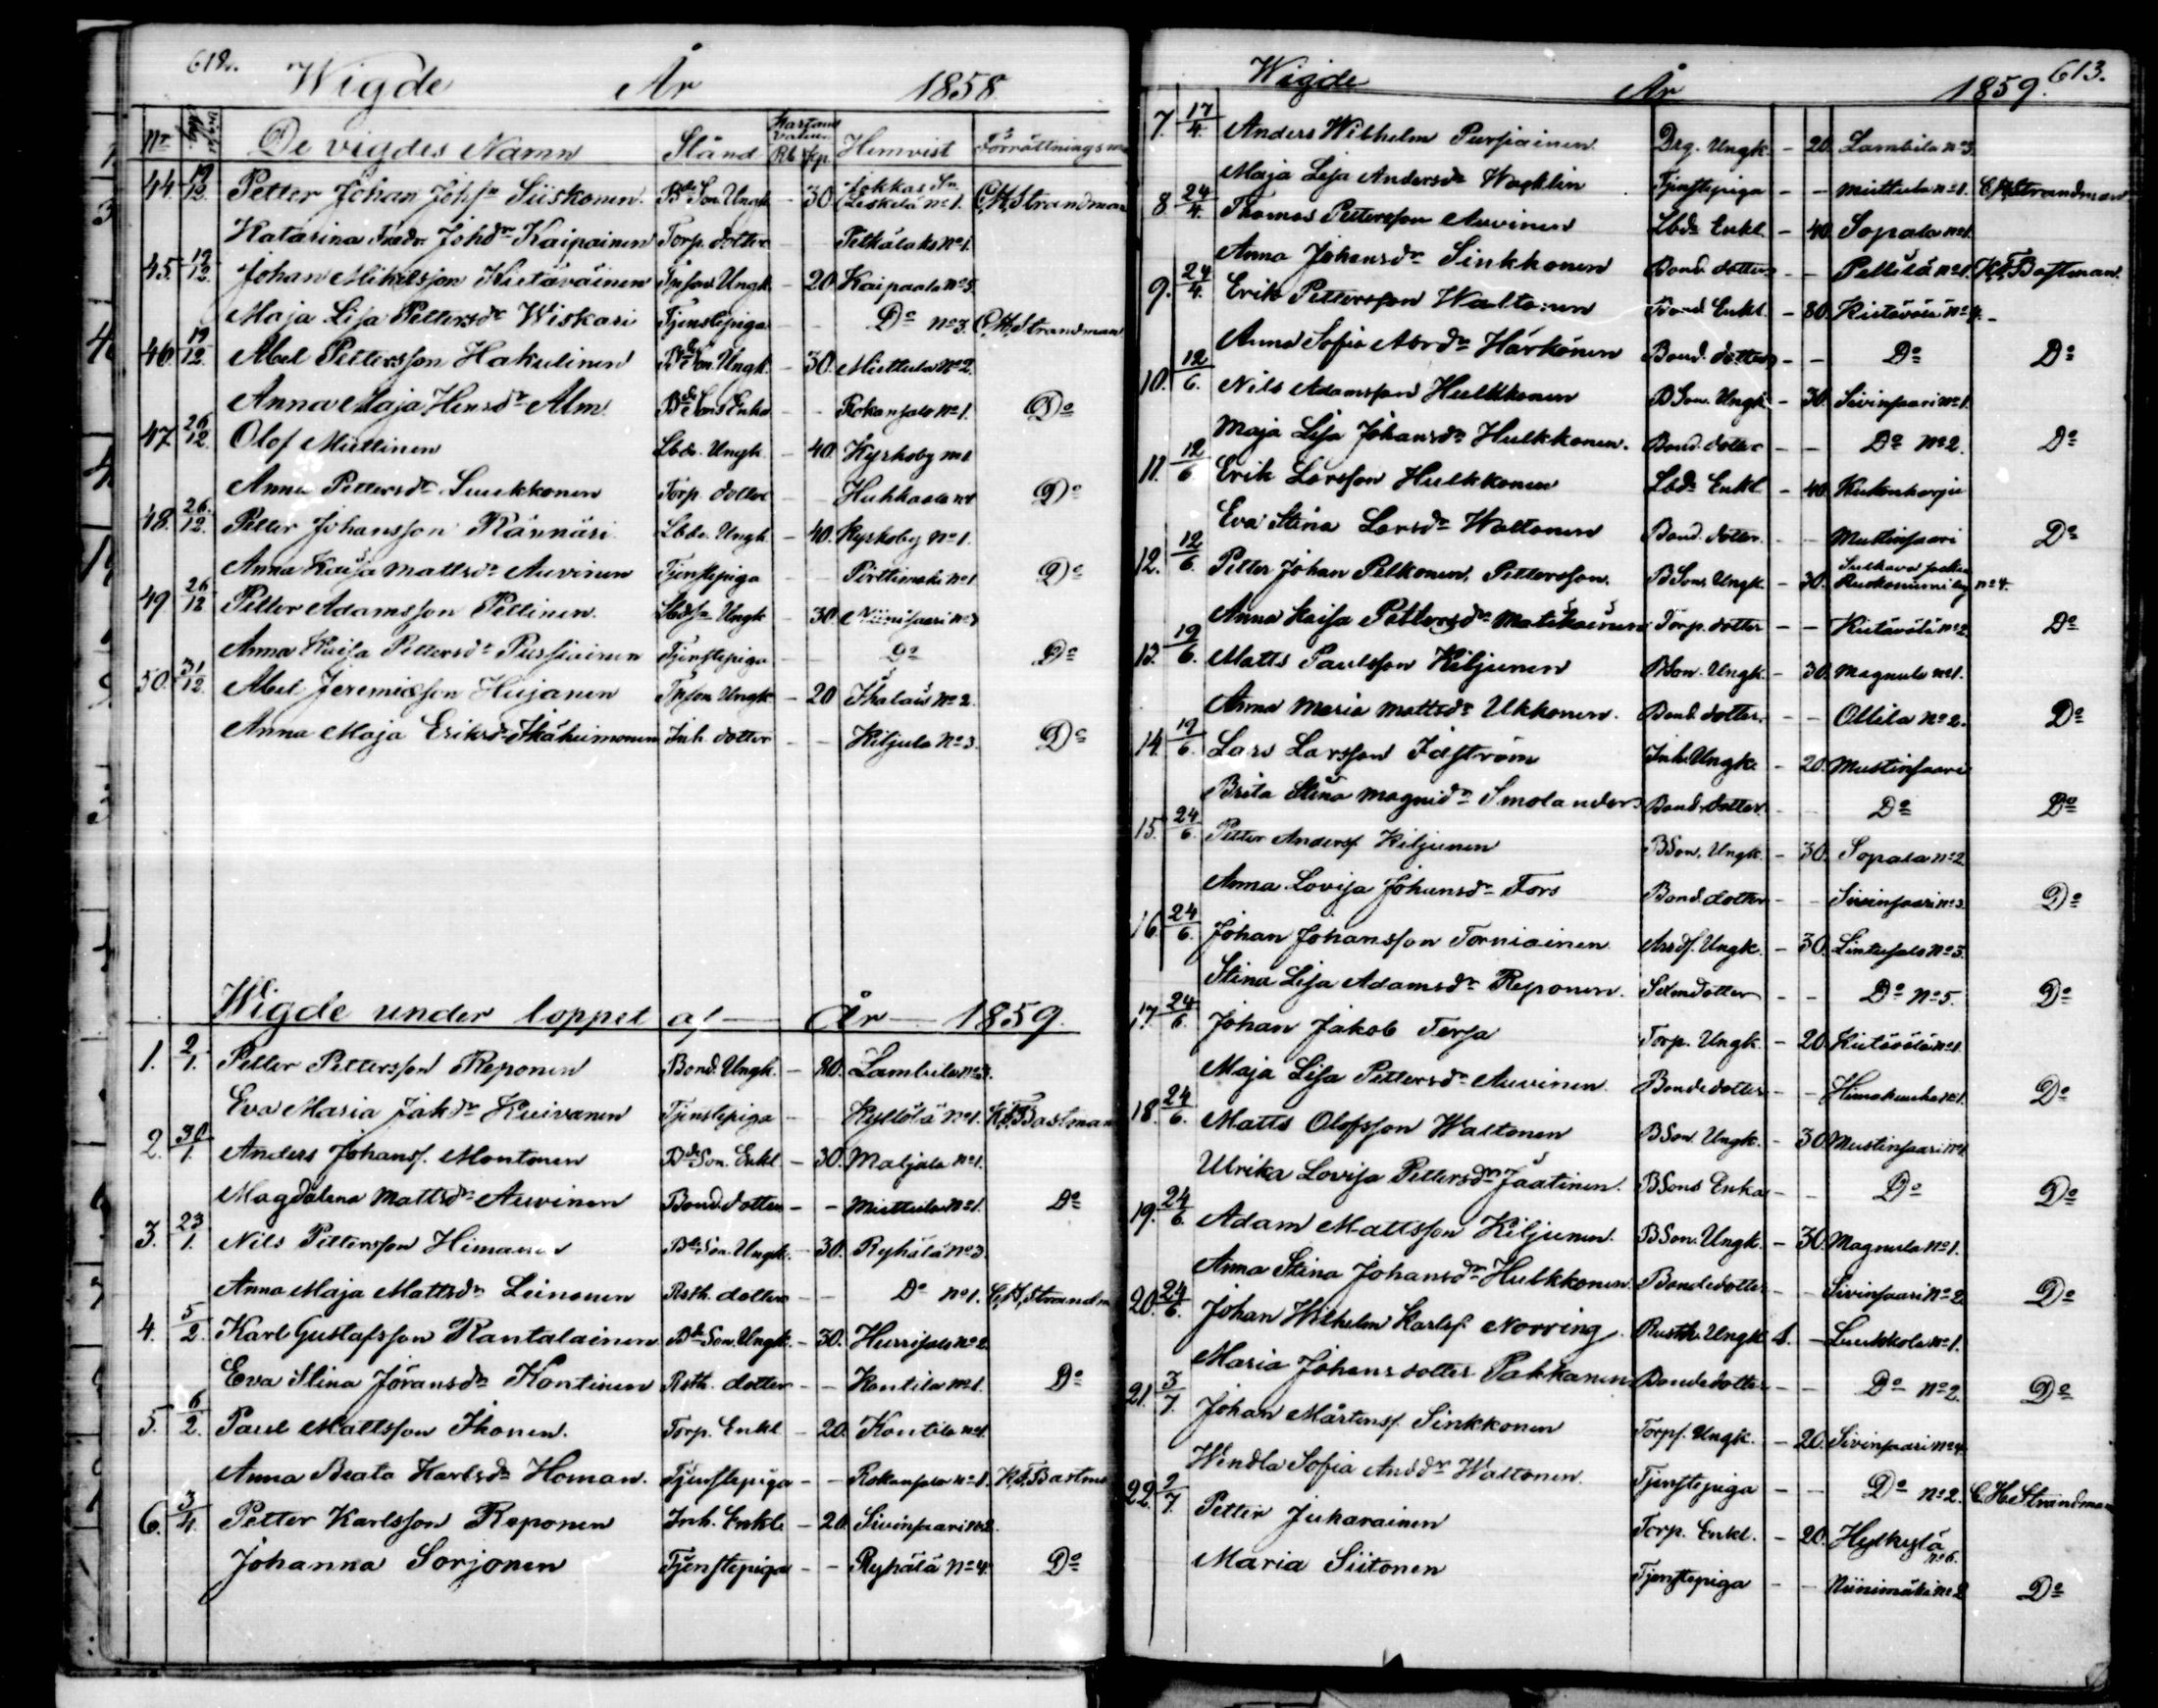 612.
Wigde År 1858
No De vigdes Namn Stånd Rb kop Hemvist Förrättningsm
44. 19/12. Petter Johan Johsn Siiskonen. Bde Son Ungk - 30. Jokkas Sn Leskelä No 1. C.H. Strandman
Katarina Fredr. Johdr Kaipainen Torp. dotter - - No 1.
45. 19/12. Johan Mikelsson Kietäväinen Tpson Ungk. - 20. Kaipaala No 5.
Maja Lisa Pettersdr Wiskari Tjenstepiga - - Do No 3. C.H. Strandman
46. 19/12. Abel Pettersson Hakulinen Bde Son. Ungk. - 30. Miettula No 2.
Anna Maja Hensdr Alm Bde Sons Enka - - Rokansalo No 1. Do
47. 26/12. Olof Miettinen Lbde. Ungk. - 40. Kyrkoby No 1.
Anna Pettersdr Suukkonen Torp. dotter - - Huhkaala Do
48. 26./12. Petter Johansson Rännäri Lbde. Ungk. - 40. Kyrkoby No 1.
Anna Kaisa Mattsdr Auvinen Tjenstepiga - - Pirttimäki No 1 Do
49 26/12 Petter Adamsson Pellinen. Ungk - 30. Niinisaari
Anna Kaisa Pettersdr Pursiainen Tjenstepiga - - Do Do
50. 31/12. Abel Jeremiasson Huijanen Tpson Ungk. - 20 Ihalais No 2.
Anna Maja Eriksdr Ikäheimonen Inh. dotter - - Kiljula No 3. Do
Wigde under loppet af År 1859.
1. 2/1. Petter Pettersson Reponen Bond. Ungk. - 80. Lambila No 3.
Eva Maria Jakdr Kuivanen Tjenstepiga - - Kyllölä No 1. K.F. Bastman
2. 30/1. Anders Johanss. Montonen Bde Son. Enkl. - 30. Maljala No 1.
Magdalena Mattsdr Auvinen Bond. dotter - - Miettula No 1. Do
3. 23/1. Nils Pettersson Himanen Bde Son. Ungk. - 30. Ryhälä No 3.
Anna Maja Mattsdr Leinonen Rsth. dotter - - Do No 1. C.H. Strandm
4. 5/2. Karl Gustafsson Rantalainen Bde Son. Ungk. - 30. Hurrisalo No 2.
Eva Stina Jöransdr Kontinen Rsth. dotter - - Kontila No 1. Do
5. 6/2. Paul Mattsson Ikonen. Torp. Enkl. - 20. Kontila No 1.
Anna Beata Karlsdr Homan. Tjenstepiga - - Rokansalo No 1. K.F. Bastma
6. 3/4. Petter Karlsson Reponen Inh. Enkl. - 20. Sivinsaari No 2.
Johanna Sorjonen Tjenstepiga - - Ryhälä No 4. Do
Wigde År 1859. 613.
7. 17/4. Anders Wilhelm Pursiainen Drg. Ungk. - 20. Lambila No 3.
Maja Lisa Andersdr Wacklin Tjenstepiga - - Miettula No 1. C.H. Strandman
8. 24/4. Thomas Pettersson Auvinen Lbde Enkl. - 40. Sopala No 1.
Anna Johansdr Sinkkonen Bond. dotter - - Pellilä No 1. K.F. Bastman.
9. 24/4. Erik Pettersson Waltonen Bond Enkl. - 80. Kietävälä No 4.
Anna Sofia Abrdr Härkönen Bond. dotter - - Do Do
10. 12/6. Nils Adamsson Hulkkonen BSon. Ungk - 30. Sivinsaari No 1.
Maja Lisa Johansdr Hulkkonen. Bond. dotter - - Do No 2. Do
11. 12/6. Erik Larsson Hulkkonen Lbde Enkl. - 40. Kukonharju
Eva Stina Larsdr Waltonen Bond. dotter. - - Mustinsaari Do
12. 12/6. Petter Johan Pelkonen, Pettersson. BSon. Ungk. - 30. Sulkava No 4.
Anna Kaisa Pettersdr Matikainen Torp. dotter - - Kietävälä No 2. Do
13. 19/6. Matts Paulsson Kiljunen BSon. Ungk. - 30. Magnula No 1.
Anna Maria Mattsdr Ukkonen. Bond. dotter. - - Ollila No 2. Do
14. 19/6. Lars Larsson Idström Inh. Ungk. - 20. Mustinsaari
Brita Stina Magnidr Smolander Bond. dotter - - Do Do
15. 24/6. Petter Anderss. Kiljunen BSon. Ungk. - 30. Sopala No 2.
Anna Lovisa Johansdr Fors Bond. dotter - - Sivinsaari No 3. Do
16. 24/6. Johan Johansson Torniainen Arrds. Ungk. - 30. Lintusalo No 3.
Stina Lisa Adamsdr Reponen. dotter - - Do No 5. Do
17. 24/6. Johan Jakob Tersa Torp. Ungk. - 20. Kietävälä No 1.
Maja Lisa Pettersdr Auvinen. Bondedotter - - No 1. Do
18. 24/6. Matts Olofsson Waltonen BSon. Ungk. - 30 Mustinsaari
Ulrika Lovisa Pettersdr Jäätinen. BSons Enka - - Do Do
19. 24/6. Adam Mattsson Kiljunen. BSon. Ungk. - 30. Magnula No 1.
Anna Stina Johansdr Hulkkonen. Bondedotter - - Sivinsaari No 2. Do
20. 24/6. Johan Wilhelm Karlss. Norring Rusth. Ungk 1. - Luukkola No 1.
Maria Johansdotter Pakkanen Bondedotter - - Do No 2. Do
21. 3/7. Johan Mårtenss. Sinkkonen Torps. Ungk. - 20. Sivinsaari No 4.
Wendla Sofia Andrdr Waltonen. Tjenstepiga - - Do No 2. C H Strandman
22. /7. Petter Juharainen Torp. Enkl. - 20. Hylkylä No 6.
Maria Siitonen Tjenstepiga - - Niinimäki No 2 Do